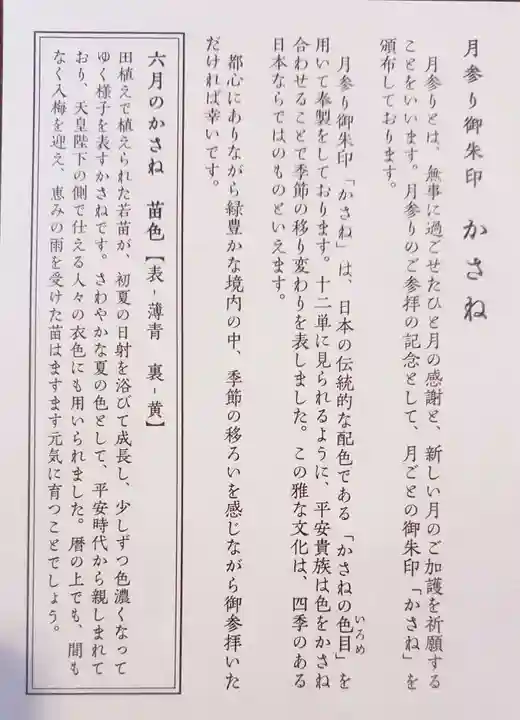 月参り御朱印 かさね
月参りとは、無事に過ごせたひと月の感謝と、新しい月のご加護を祈願する
ことをいいます。月参りのご参拝の記念として、月ごとの御朱印「かさね」を
頒布しております。
月参り御朱印「かさね」は、日本の伝統的な配色である「かさねの色目」を
いろめ
用いて奉製をしております。十二単に見られるように、平安貴族は色をかさね
合わせることで季節の移り変わりを表しました。この雅な文化は、四季のある
日本ならではのものといえます。
都心にありながら緑豊かな境内の中、季節の移ろいを感じながら御参拝いた
だければ幸いです。
六月のかさね 苗色【表-薄青 裏-黄】
田植えで植えられた若苗が、初夏の日射を浴びて成長し、少しずつ色濃くなって
ゆく様子を表すかさねです。さわやかな夏の色として、平安時代から親しまれて
おり、天皇陛下の側で仕える人々の衣色にも用いられました。暦の上でも、間も
なく入梅を迎え、恵みの雨を受けた苗はますます元気に育つことでしょう。